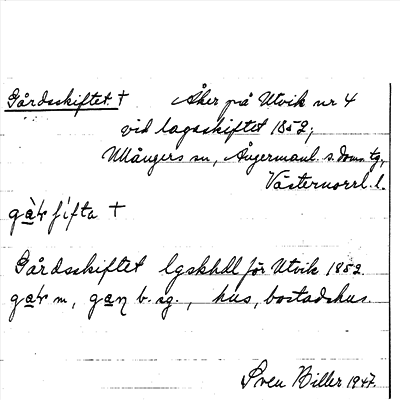 Gårdsskiftet † Åker på Utvik nr 4
vid lagaskiftet 1852,
Ullångers sn, Ångermanl. s. doms. tg,
Västernorrl. l.
gàr̀ fifta †
Gårdsskiftet lgskhdl för Utvik 1852
gar m, gaɳ b. sg., hus, bostadshus.
Sven Biller 1947.